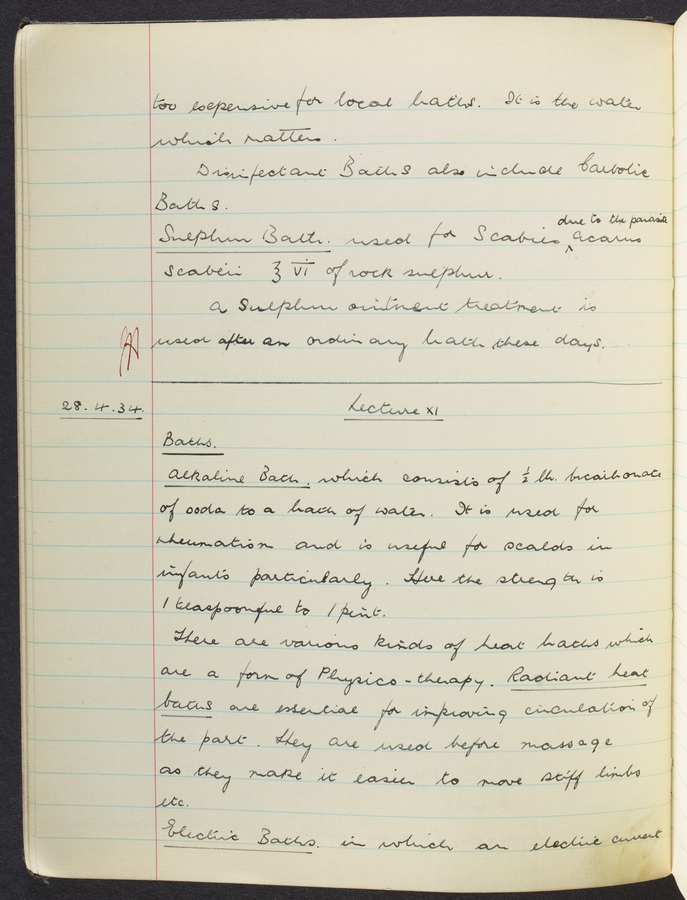 too expensive for local baths. It is the water
which matters.
Disinfectant Baths also include Carbolic
Baths.
due to the parasite
Sulphur Bath. used for Scabies ^ acarus
scabeii ℥ VI of rock sulphur.
a Sulphur ointment treatment is
used after an ordinary bath these days.
28.4.34. Lecture XI
Baths.
Alkaline Bath. which consists of ½ lb. bicarbonate
of soda to a bath of water. It is used for
rheumatism and is useful for scalds in
infants particularly. Here the strength is
1 teaspoonful to 1 pint.
There are various kinds of heat baths which
are a form of Physico-therapy. Radiant heat
baths are essential for improving circulation of
the part. They are used before massage
as they make it easier to move stiff limbs
etc.
Electric Baths. in which an electric current